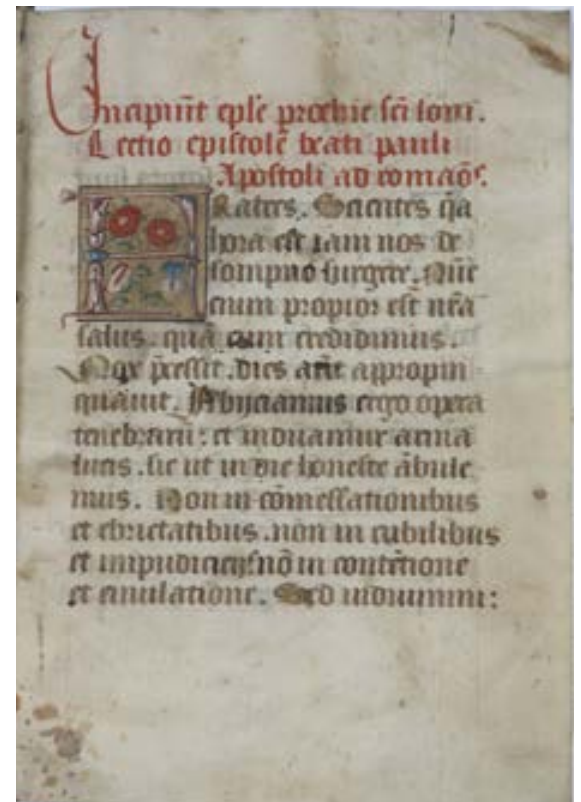 Incipiūt eplē prochie sci̅ ioni.
Lectio epistole̅ beati pauli
Apostoli ad romaōs.
FRatres. Scientes q̅a
hora est iam nos de
sompno surgere. Nūc
enim propior est nr̄a
salus. quā cum credidimus.
Nox p̄cessit. dies aūt appropin
quauit. Abijciamus ergo opera
tenebrarū: et induamur arma
lucis. sic ut in die honeste ābule
mus. Non in cōmessationibus
et ebrietatibus. non in cubilibus
et impudicicijs nō in contētione
et emulatione. Sed induimini: